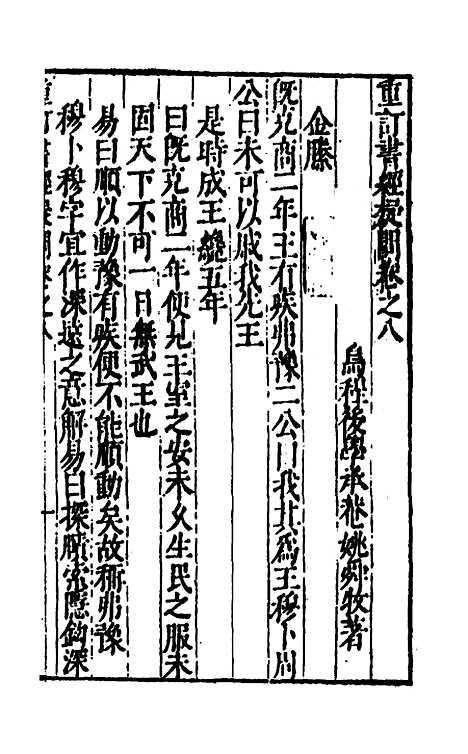 重訂書經疑問卷之八
烏程後學承菴姚舜牧著
金縢
既克商二年王有疾弗豫二公曰我其爲王穆卜周
公曰未可以戚我先王
是時成王纔五年
曰既克商二年便見王室之安未久生民之服未
固天下不可一日無武王也
易曰順以動豫有疾便不能順動矣故稱弗豫
穆卜穆字宜作深遠之意解易曰探賾索隱鈎深
重訂書經疑問卷之八
一